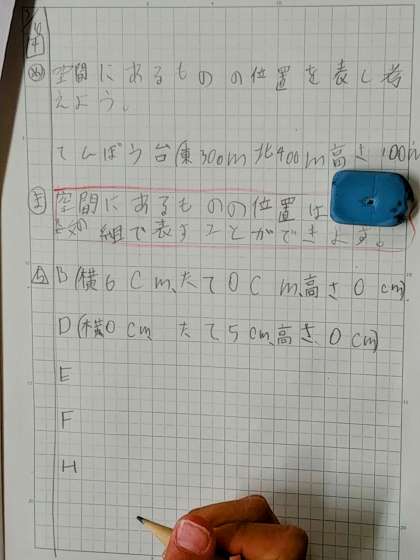 3/4
め 空間にあるものの位置を表し考
えよう。
てんぼう台(東300m北400m高さ100m
ま 空間にあるものの位置は
の組で表すことができます。
B(横6cm、たて0cm、高さ0cm)
D(横0cm、たて5cm、高さ0cm)
E
F
H